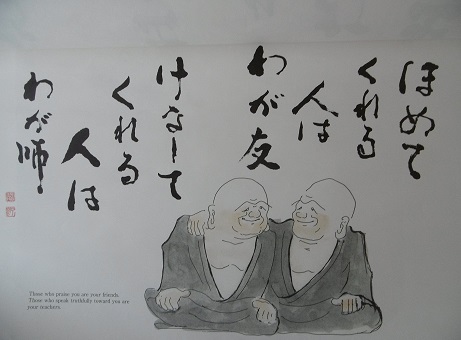 ほめて
くれる
人は
わが友
けなして
くれる
人は
わが師
Those who praise you are your friends.
Those who speak truthfully toward you are
your teachers.